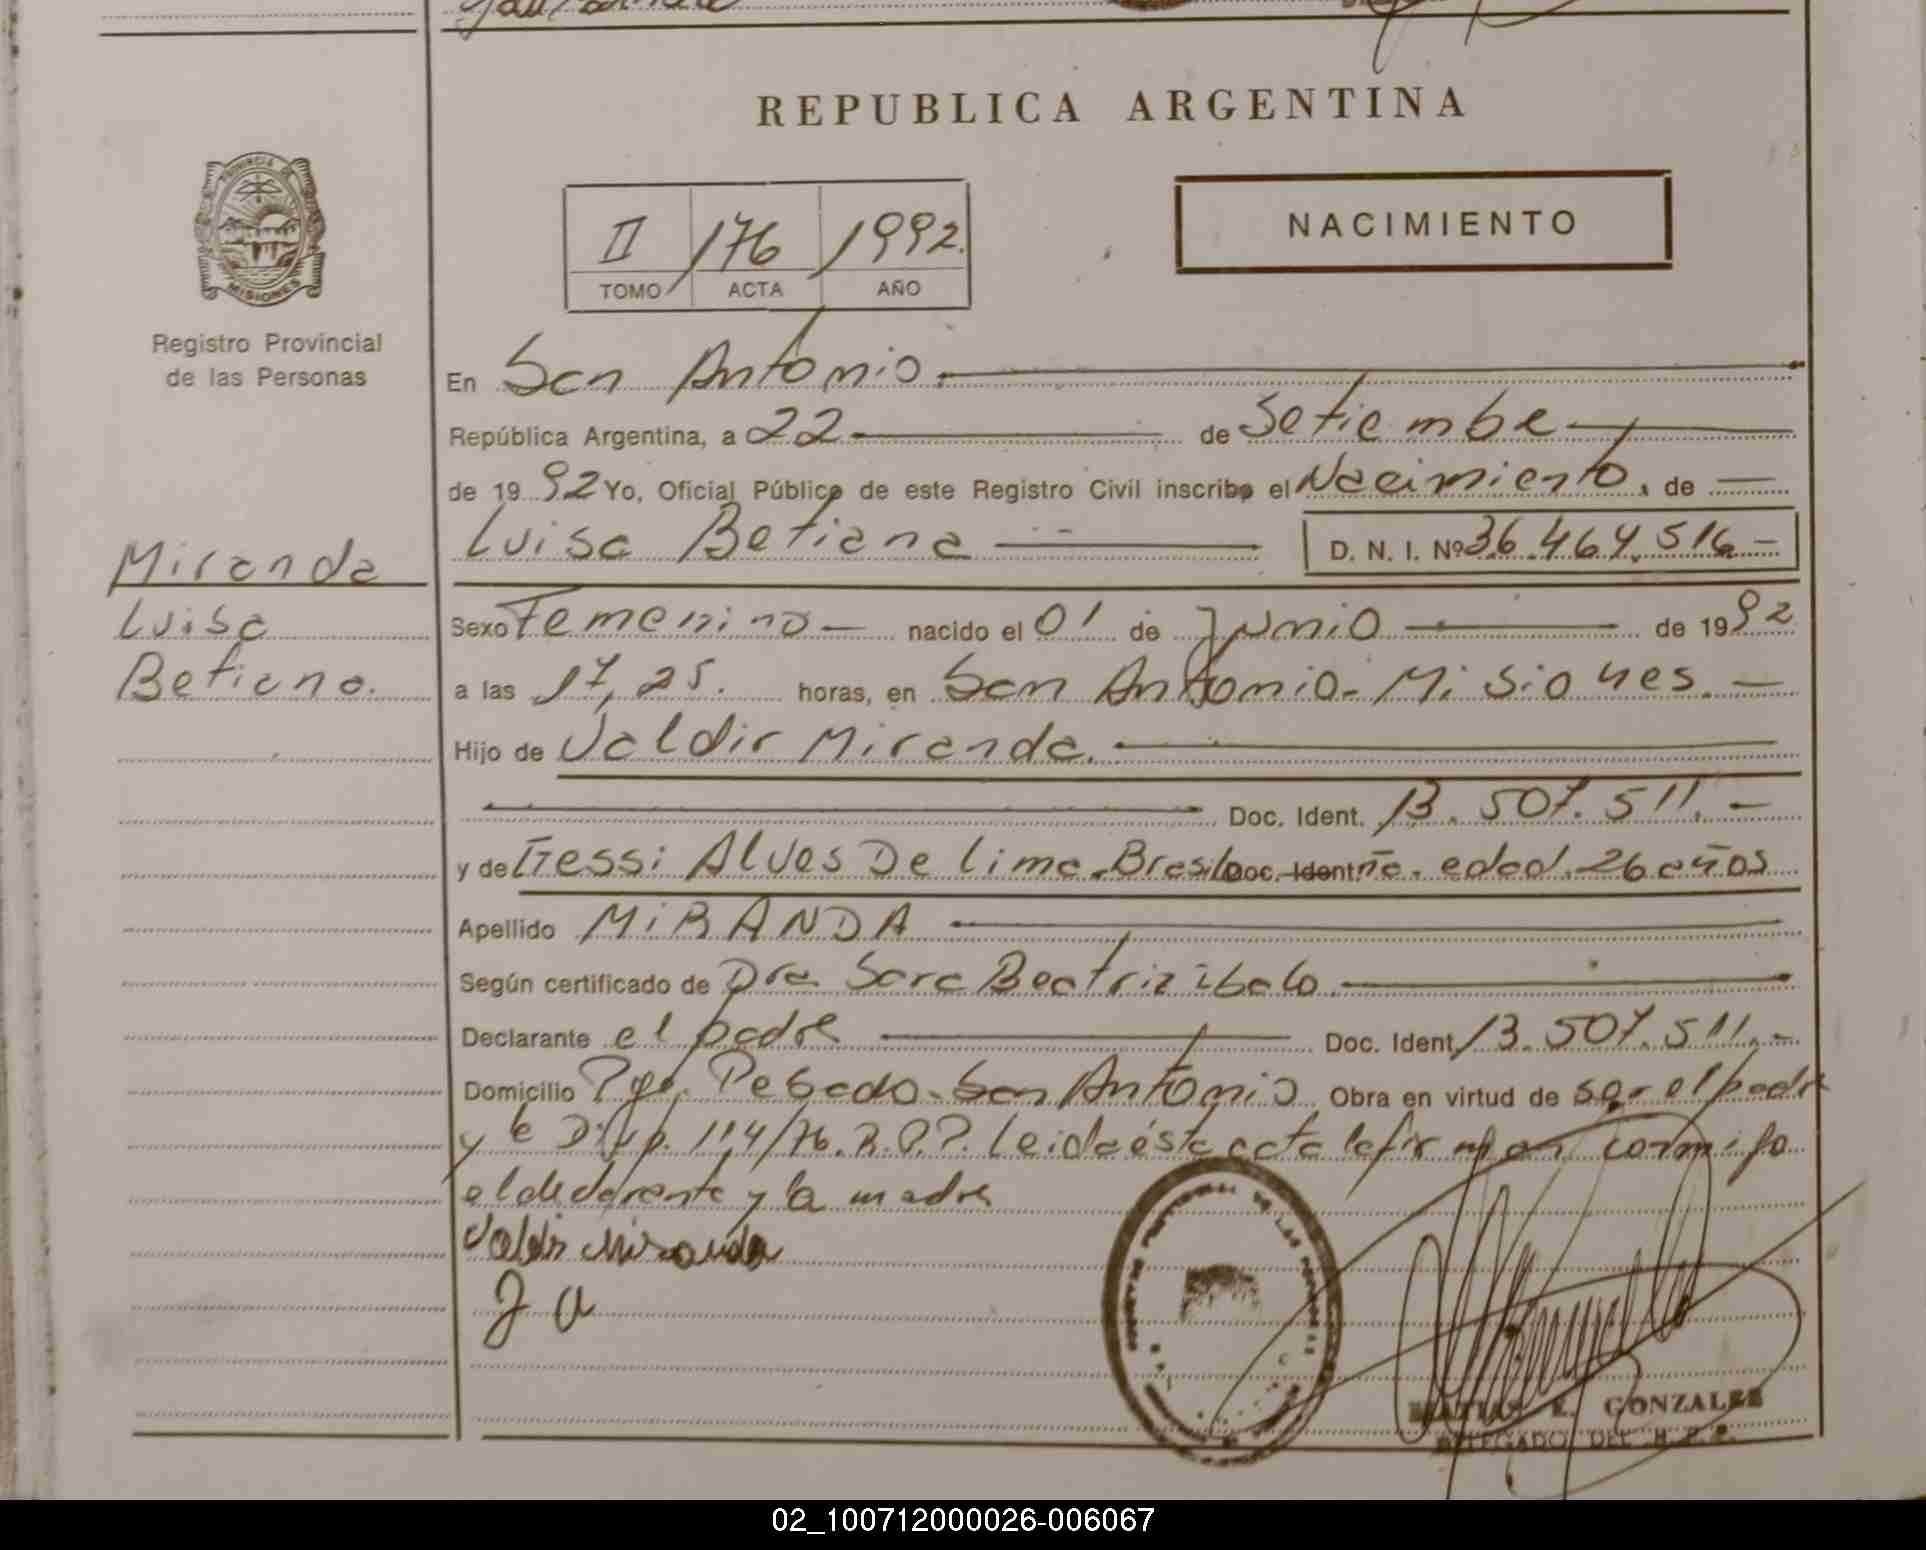 REPUBLICA ARGENTINA
PROVINCIA DE
MISIONES
II 176 1992.
TOMO ACTA AÑO
NACIMIENTO
Registro Provincial
de las Personas
En San Antonio.
República Argentina, a 22 de Setiembre
de 1992 Yo, Oficial Público de este Registro Civil inscribo el Nacimiento, de
Luisa Betiana D. N. I. Nº 36.464.516-
Miranda
Luisa
Betiana.
Sexo Femenino nacido el 01 de Junio de 1992
a las 17,25. horas, en San Antonio-Misiones.
Hijo de Valdir Miranda.
Doc. Ident. 13.507.511.-
y de Alves De lima Doc. Ident. edad 26 años
Apellido MIRANDA
Según certificado de Dra Sara Beatriz
Declarante el padre Doc. Ident. 13.507.511.-
Domicilio Pje. Pesado-San Antonio Obra en virtud de ser el padre
y la Disp. 114/76.R.P.P. Leida ésta acta la firman conmigo
el declarante y la madre
Valdir Miranda
J A
MATIAS E. GONZALEZ
DELEGADO DEL R. P. P.
02_100712000026-006067